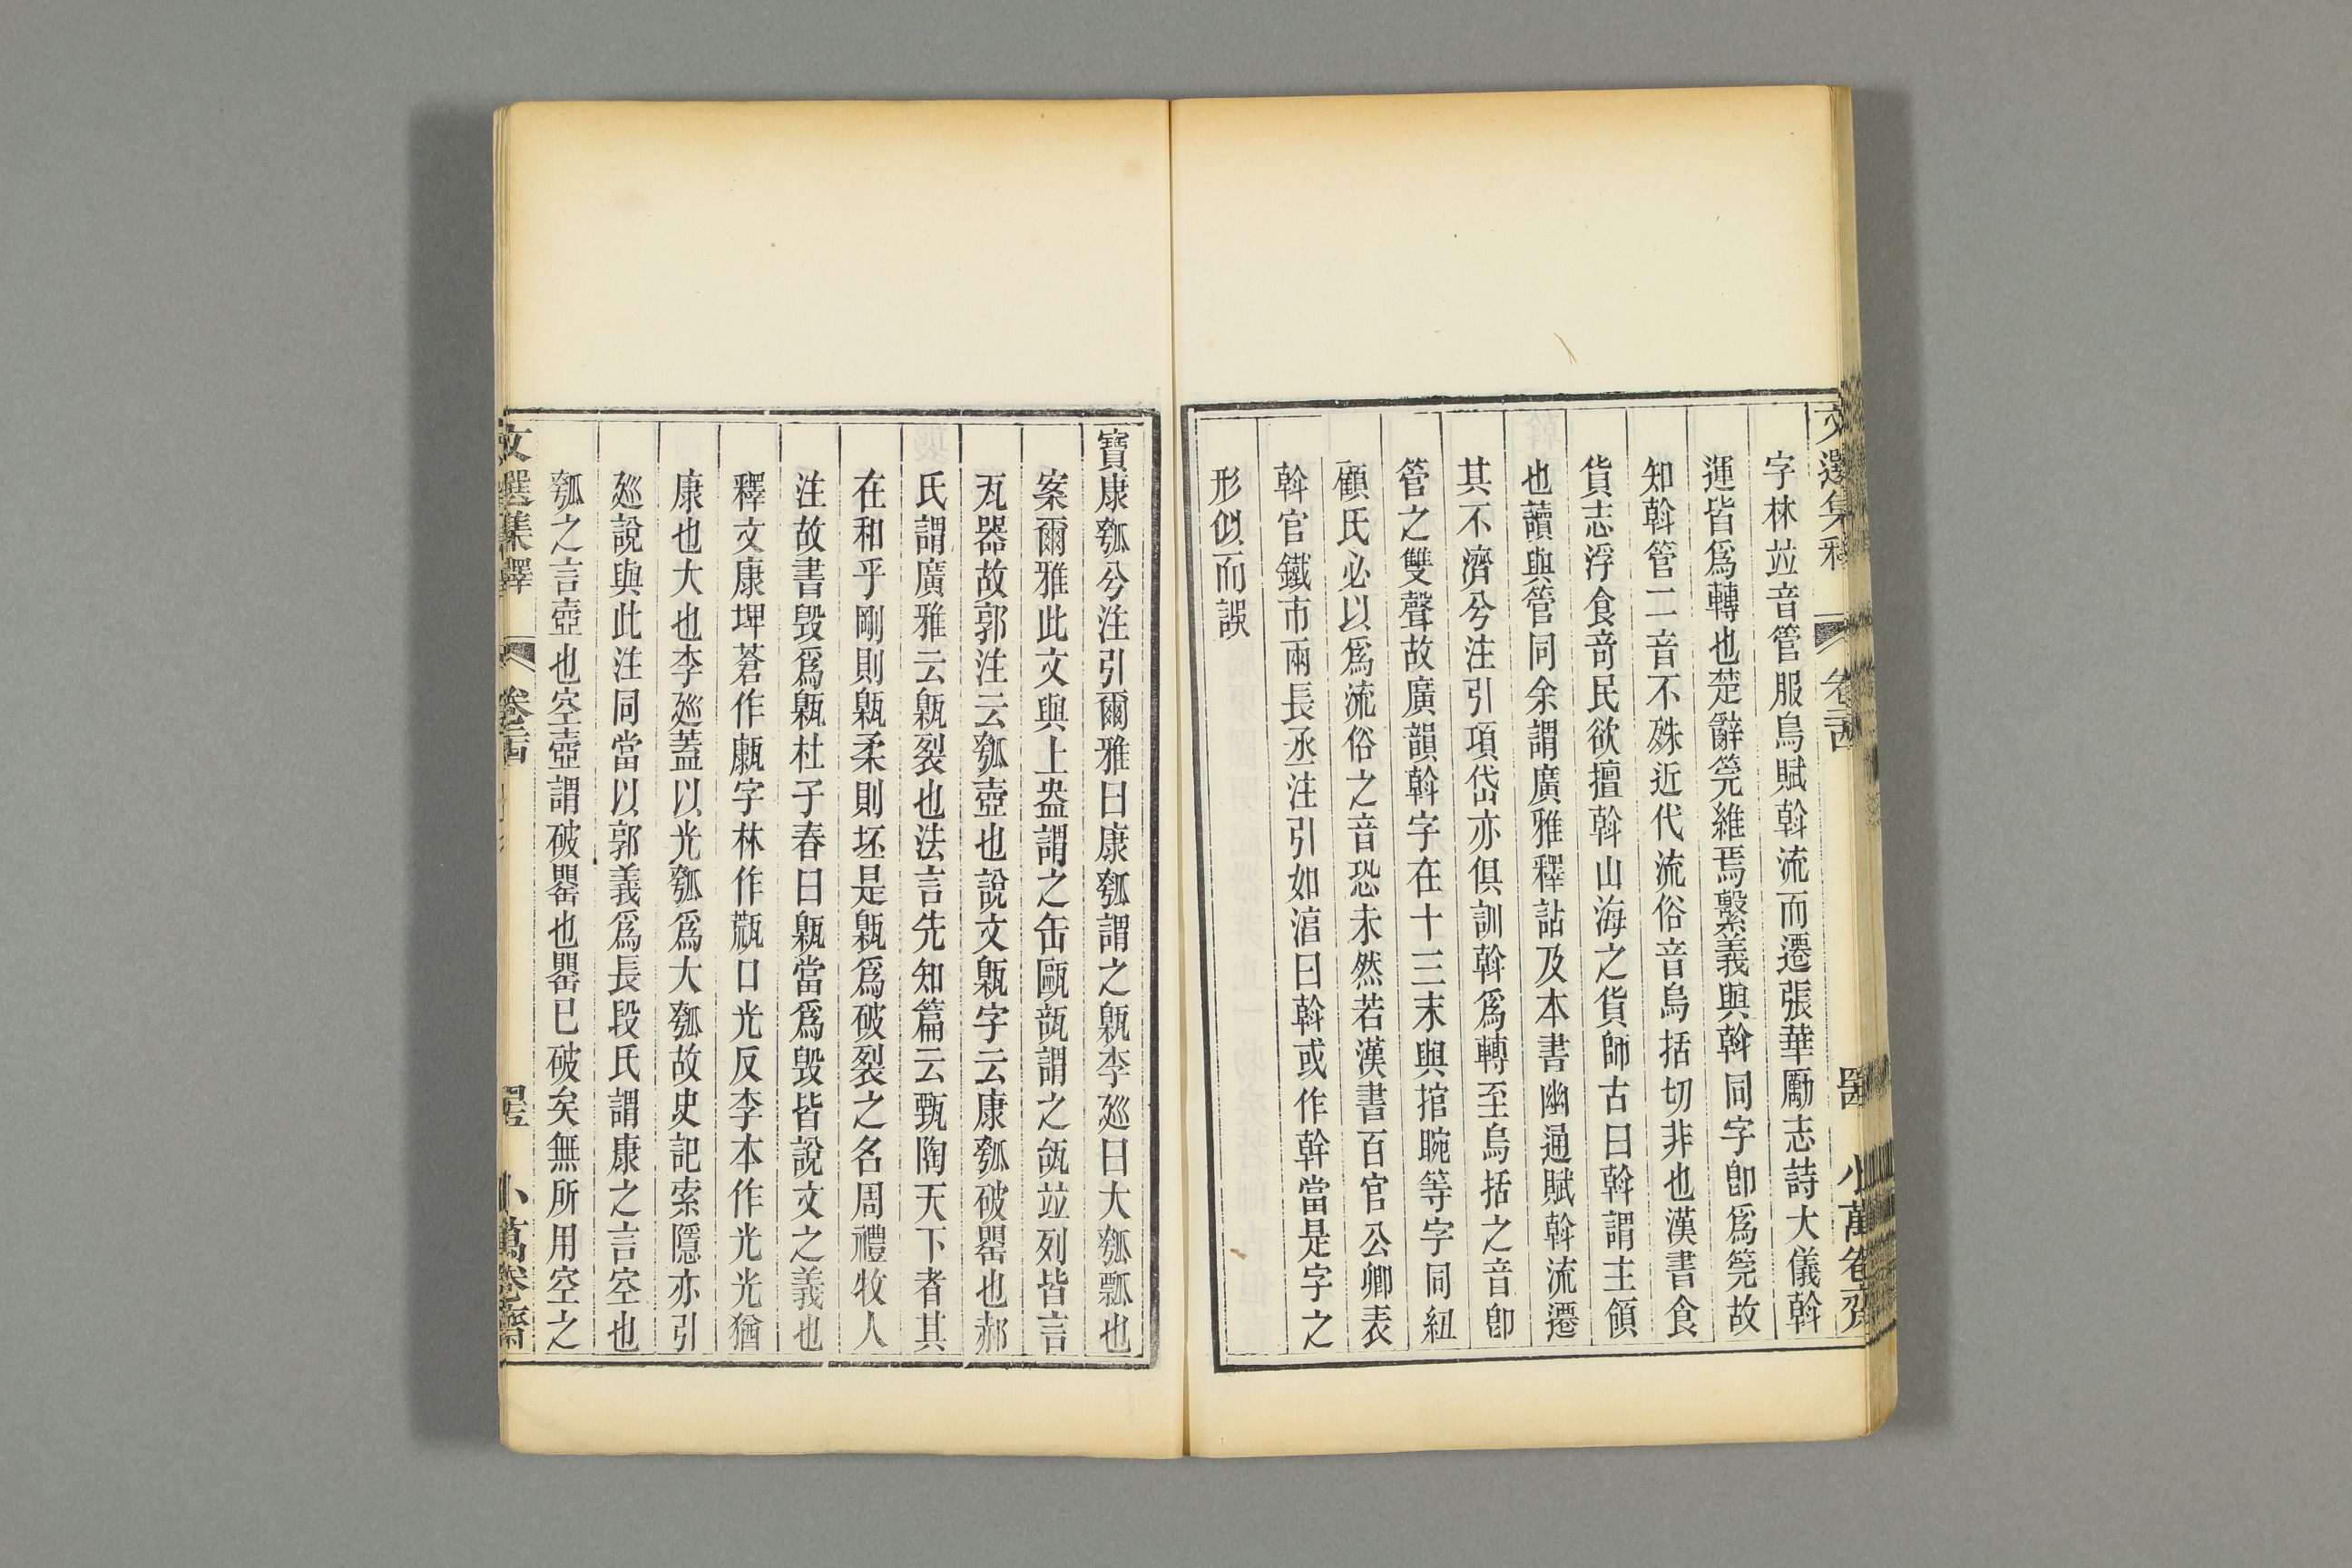 文選集釋 卷二十四 小萬卷齋
字林竝音管服鳥賦斡流而遷張華勵志詩大儀斡
運皆爲轉也楚辭筦維焉繫義與斡同字卽爲筦故
知斡管二音不殊近代流俗音烏括切非也漢書食
貨志浮食竒民欲擅斡山海之貨師古曰斡謂主領
也讀與管同余謂廣雅釋詁及本書幽通賦斡流遷
其不濟兮注引項岱亦俱訓斡爲轉至烏括之音卽
管之雙聲故廣韻斡字在十三末與捾睕等字同紐
顧氏必以爲流俗之音恐未然若漢書百官公卿表
斡官鐵市兩長丞注引如湻曰斡或作幹當是字之
形似而誤
寶康瓠兮注引爾雅曰康瓠謂之甈李廵曰大瓠瓢也
案爾雅此文與上盎謂之缶甌瓿謂之瓵竝列皆言
瓦器故郭注云瓠壺也說文甈字云康瓠破罌也郝
氏謂廣雅云甈裂也法言先知篇云甄陶天下者其
在和乎剛則甈柔則坯是甈爲破裂之名周禮牧人
注故書毁爲甈杜子春曰甈當爲毁皆說文之義也
釋文康埤蒼作㼹字林作㼹口光反李本作光光猶
康也大也李廵蓋以光瓠爲大瓠故史記索隱亦引
廵說與此注同當以郭義爲長段氏謂康之言空也
瓠之言壺也空壺謂破罌也罌已破矣無所用空之
文選集釋 卷二十四 小萬卷齋